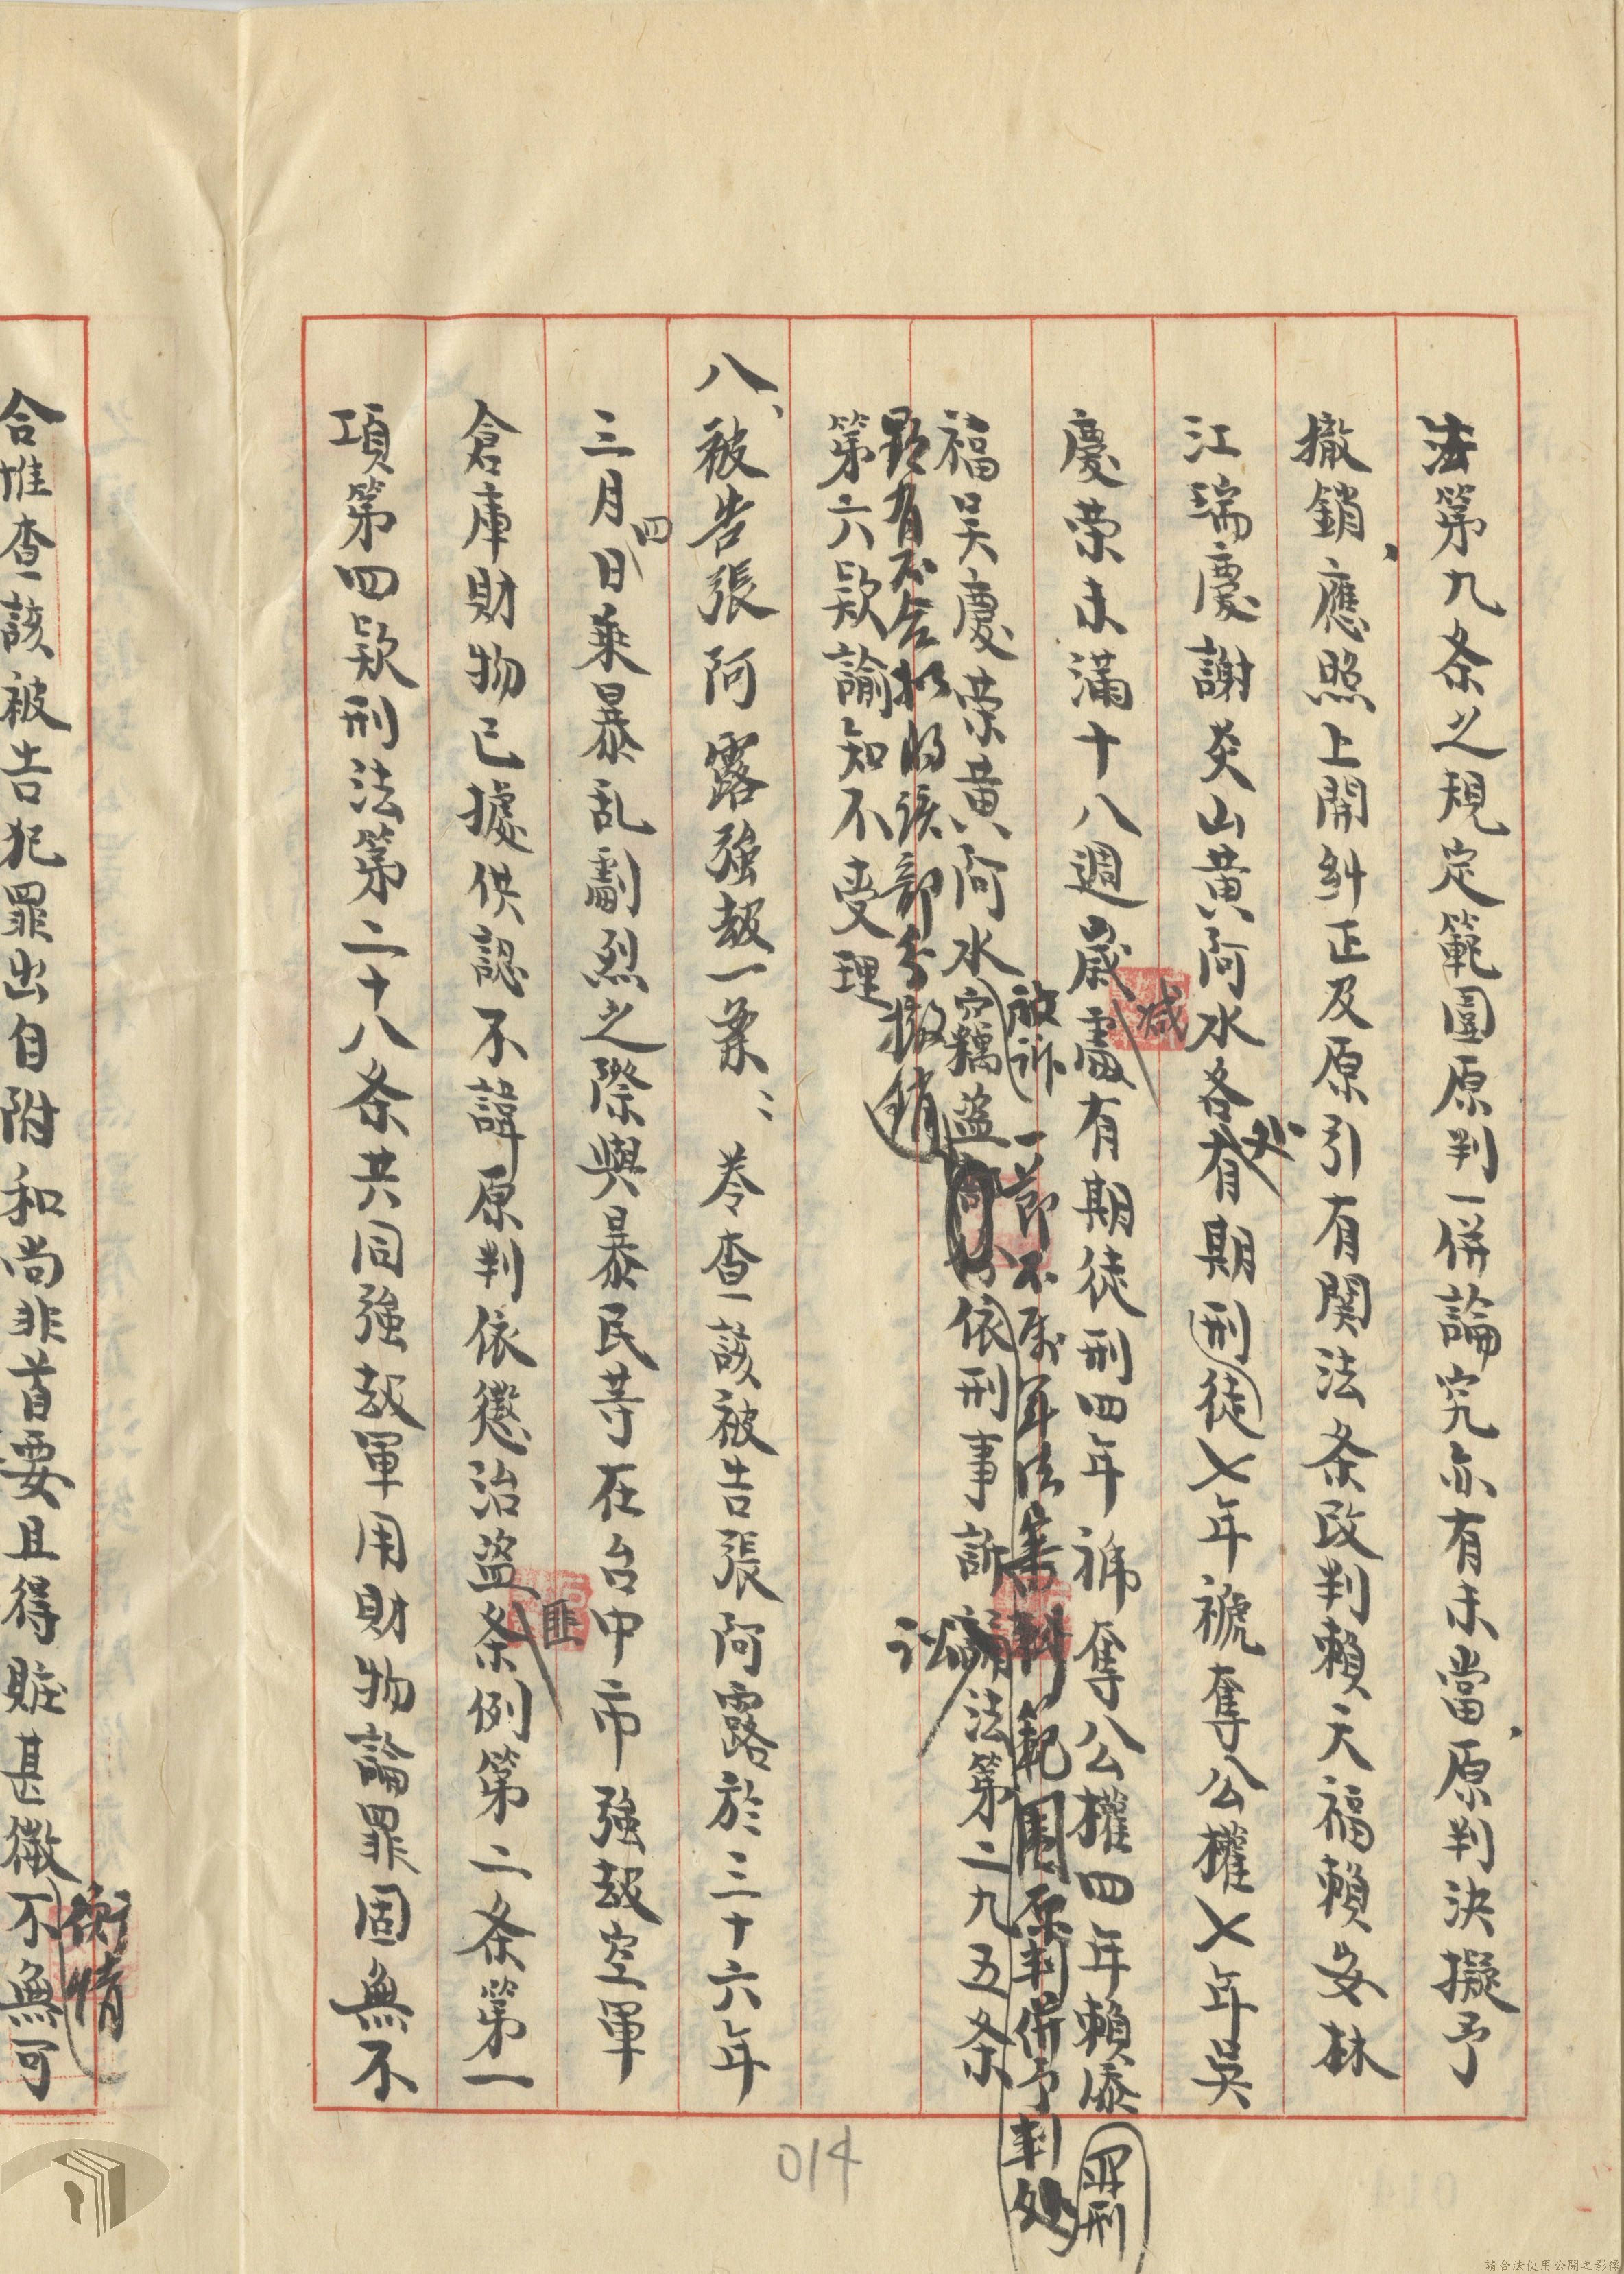 法第九条之規定範圍原判一併論究亦有未當、原判決擬予
撤銷、應照上開糾正及原引有関法条改判賴天福賴安林
江瑞慶謝炎山黃阿水各处有期刑徒乂年褫奪公權乂年吳
慶荣未滿十八週歲減處有期徒刑四年褫奪公權四年賴添
罪刑
福吳慶荣黃阿水竊盜
被訴
一節不屬軍法審判範圍原判併予判处
顯有不合擬將該部分撤銷
依刑事訴訟法第二九五条
第六款諭知不受理
八、被告張阿露強刼一案：查該被告張阿露於三十六年
三月四日乗暴乱劇烈之際與暴民等在台中市強刼空軍
倉庫財物已據供認不諱原判依懲治盜匪条例第二条第一
項第四款刑法第二十八条共同強刼軍用財物論罪固無不
合惟查該被告犯罪出自附和尚非首要且得賍甚微不無可
衡情
014
請合法使用公開之影像